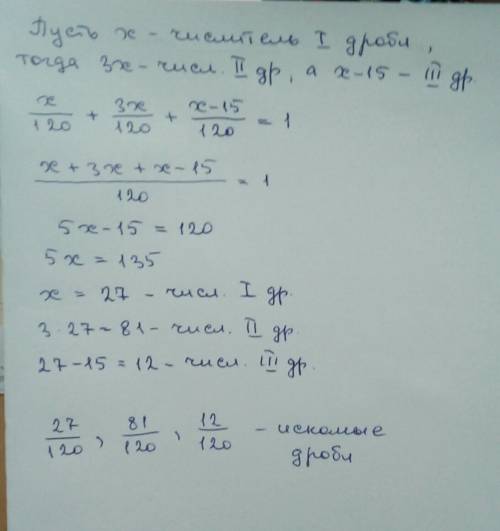 Пусть x - числитель I дроби,
тогда 3x - числ. II др, а x-15 - III др
x/120 + 3x/120 + x-15/120 = 1
x + 3x + x - 15/120 = 1
5x - 15 = 120
5x = 135
x = 27 - числ. I др.
3·27 = 81 - числ. II др.
27-15 = 12 - числ. III др.
27/120, 81/120, 12/120 - искомые
дроби